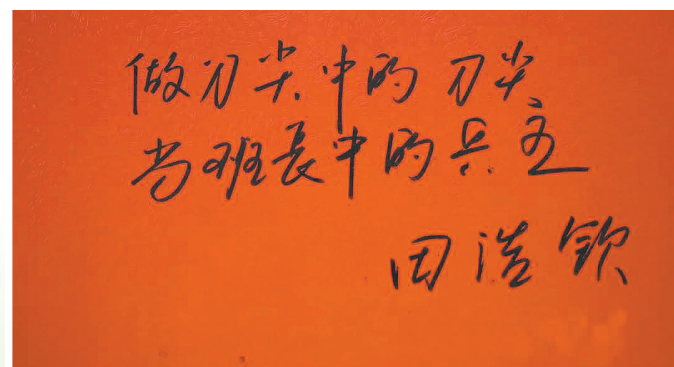 做刀尖中的刀尖
当班长中的兵王
田浩钦